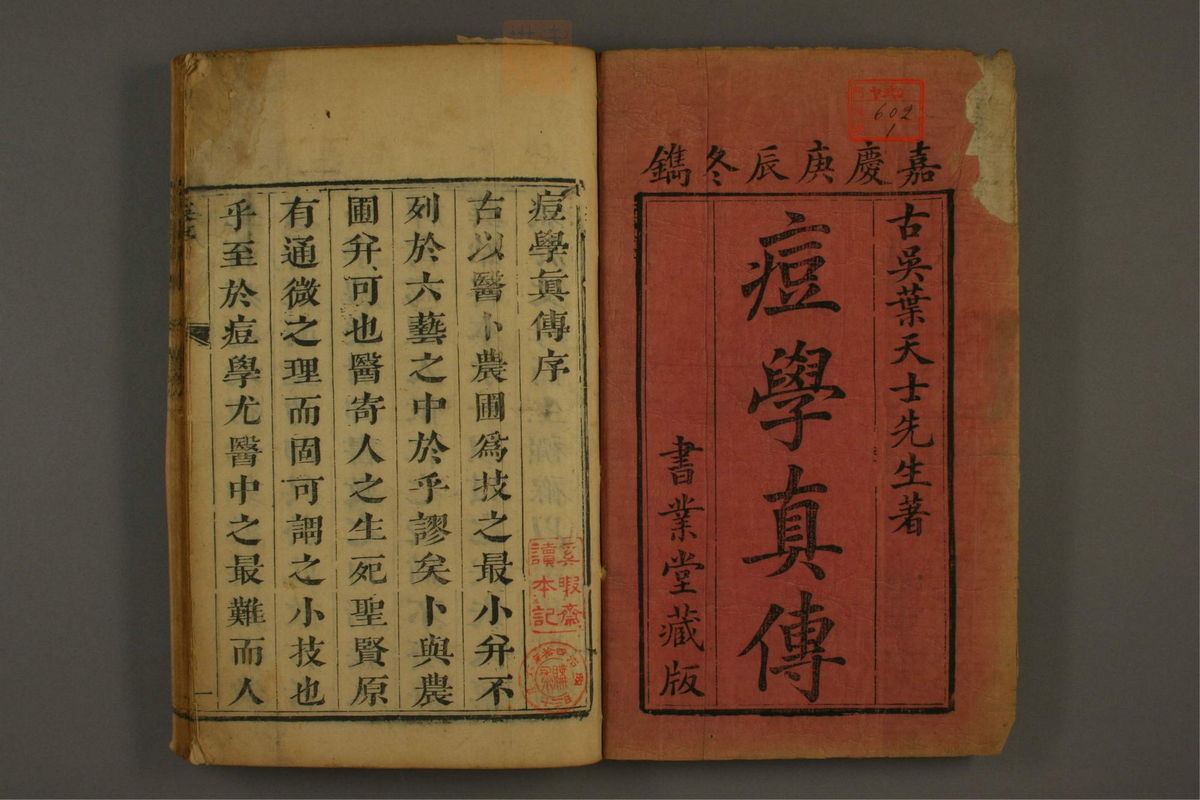 嘉慶庚辰冬鐫
古吳葉天士先生著
痘學真傳
書業堂藏版
602
1
痘學眞傳序
古以醫卜農圃爲技之最小弁不
列於六藝之中於乎謬矣卜與農
圃弁可也醫寄人之生死聖賢原
有通微之理而固可謂之小技也
乎至於痘學尤醫中之最難而人
暇齋
讀本記